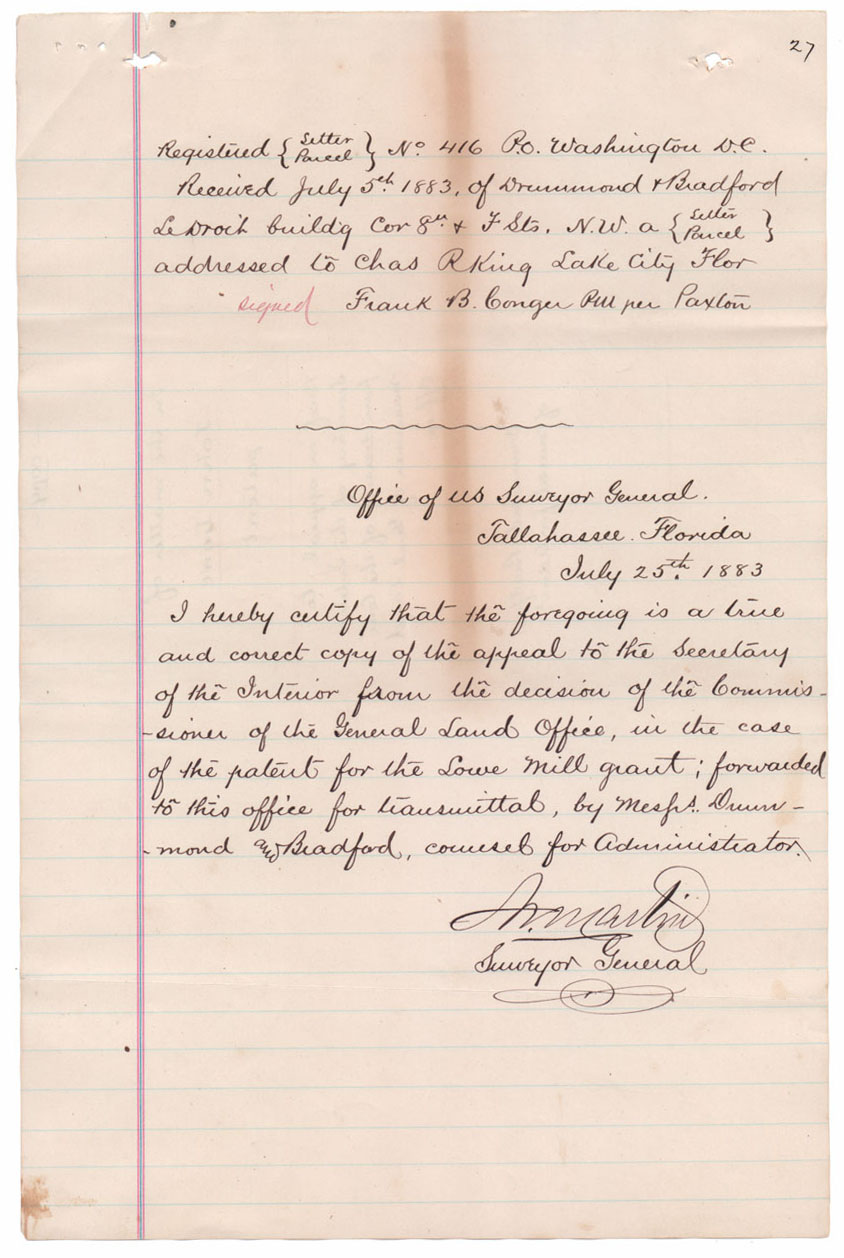 27
Registered { Letter Parcel } No 416 P.O. Washington D.C.
Received July 5th 1883, of Drummond & Bradford
LeDroit buildg Cor 8th & F Sts. N.W. a { Letter Parcel }
addressed to Chas R King Lake City Flor
signed Frank B. Conger PM per Paxton
Office of US Surveyor General.
Tallahassee. Florida
July 25th. 1883
I hereby certify that the foregoing is a true
and correct copy of the appeal to the Secretary
of the Interior from the decision of the Commis-
-sioner of the General Land Office, in the case
of the patent for the Lowe Mill grant; forwarded
to this office for transmittal, by Messrs. Drum-
-mond and Bradford, counsel for Administrator.
Martin
Surveyor General